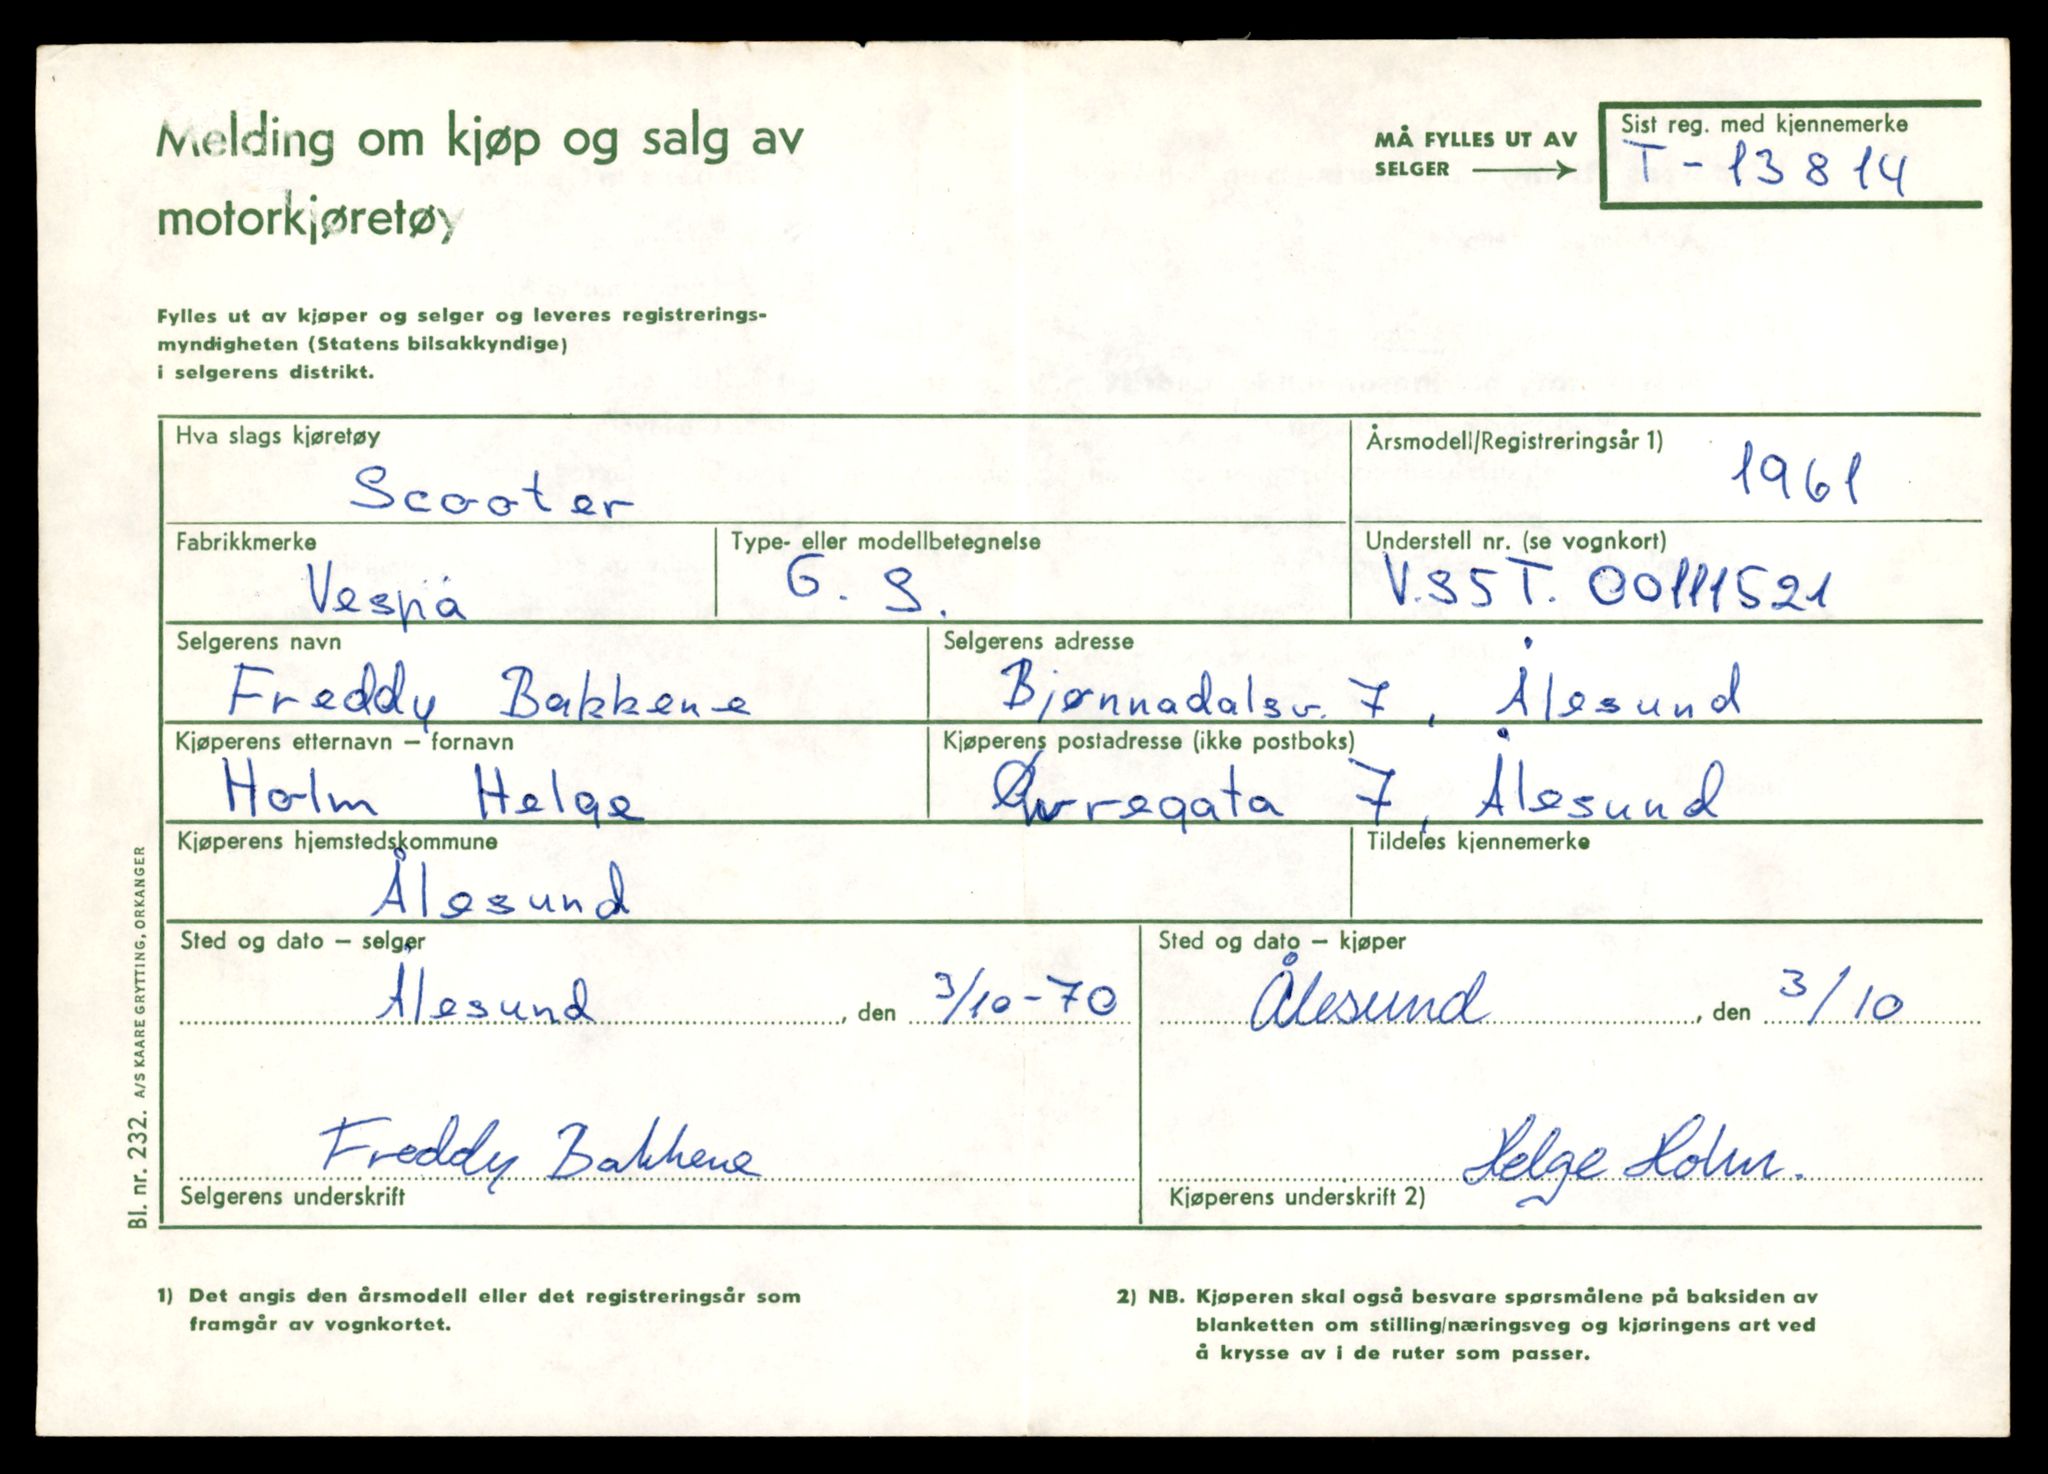 Melding om kjøp og salg av
motorkjøretøy
MÅ FYLLES UT AV
SELGER
Sist reg. med kjennemerke
T - 13814
Fylles ut av kjøper og selger og leveres registrerings-
myndigheten (Statens bilsakkyndige)
i selgerens distrikt.
Hva slags kjøretøy
Scooter
Årsmodell/Registreringsår 1)
1961
Fabrikkmerke
Vespa
Type- eller modellbetegnelse
G. S.
Understell nr. (se vognkort)
V.S5T. 00111521
Selgerens navn
Freddy Bakkene
Selgerens adresse
Bjønnadalsv. 7, Ålesund
Kjøperens etternavn – fornavn
Holm Helge
Kjøperens postadresse (ikke postboks)
Øvregata 7, Ålesund
Kjøperens hjemstedskommune
Ålesund
Tildeles kjennemerke
Sted og dato – selger
Ålesund, den 3/10-70
Sted og dato – kjøper
Ålesund, den 3/10
Freddy Bakkene
Selgerens underskrift
Helge Holm.
Kjøperens underskrift 2)
1) Det angis den årsmodell eller det registreringsår som
framgår av vognkortet.
2) NB. Kjøperen skal også besvare spørsmålene på baksiden av
blanketten om stilling/næringsveg og kjøringens art ved
å krysse av i de ruter som passer.
Bl. nr. 232. A/S KAARE GRYTTING, ORKANGER